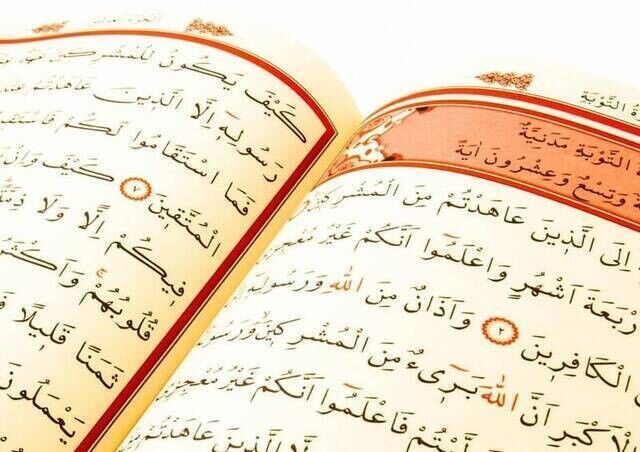 التَّوْبَةِ
التَّوْبَةِ مَدَنِيَّةٌ
وَتِسْعٌ وَعِشْرُونَ اٰيَةً
اِلَى الَّذٖينَ عَاهَدْتُمْ مِنَ الْمُشْرِكٖينَ
رْبَعَةَ اَشْهُرٍ وَاعْلَمُٓوا اَنَّكُمْ غَيْرُ مُعْجِزِ
الْكَافِرٖينَ ٢ وَاَذَانٌ مِنَ اللّٰهِ وَرَسُولِهٖٓ
الْاَكْبَرِ اَنَّ اللّٰهَ بَرٖٓيءٌ مِنَ الْمُشْرِكٖينَ وَرَسُو
لَّيْتُمْ فَاعْلَمُٓوا اَنَّكُمْ غَيْرُ مُعْجِزِ
اِلَّا الَّذٖينَ عَاهَدْتُمْ
كَيْفَ يَكُونُ لِلْمُشْرِكٖينَ عَهْدٌ
رَسُولِهٖٓ اِلَّا الَّذٖينَ عَاهَدْتُمْ عِنْدَ
فَمَا اسْتَقَامُوا لَكُمْ فَاسْتَقٖ
الْمُتَّقٖينَ ٧ كَيْفَ وَاِنْ
فٖيكُمْ اِلًّا وَلَا ذِمَّ
قُلُوبُهُمْۚ وَاَكْثَرُ
ثَمَنًا قَلٖيلًا فَ
يَعْمَلُونَ